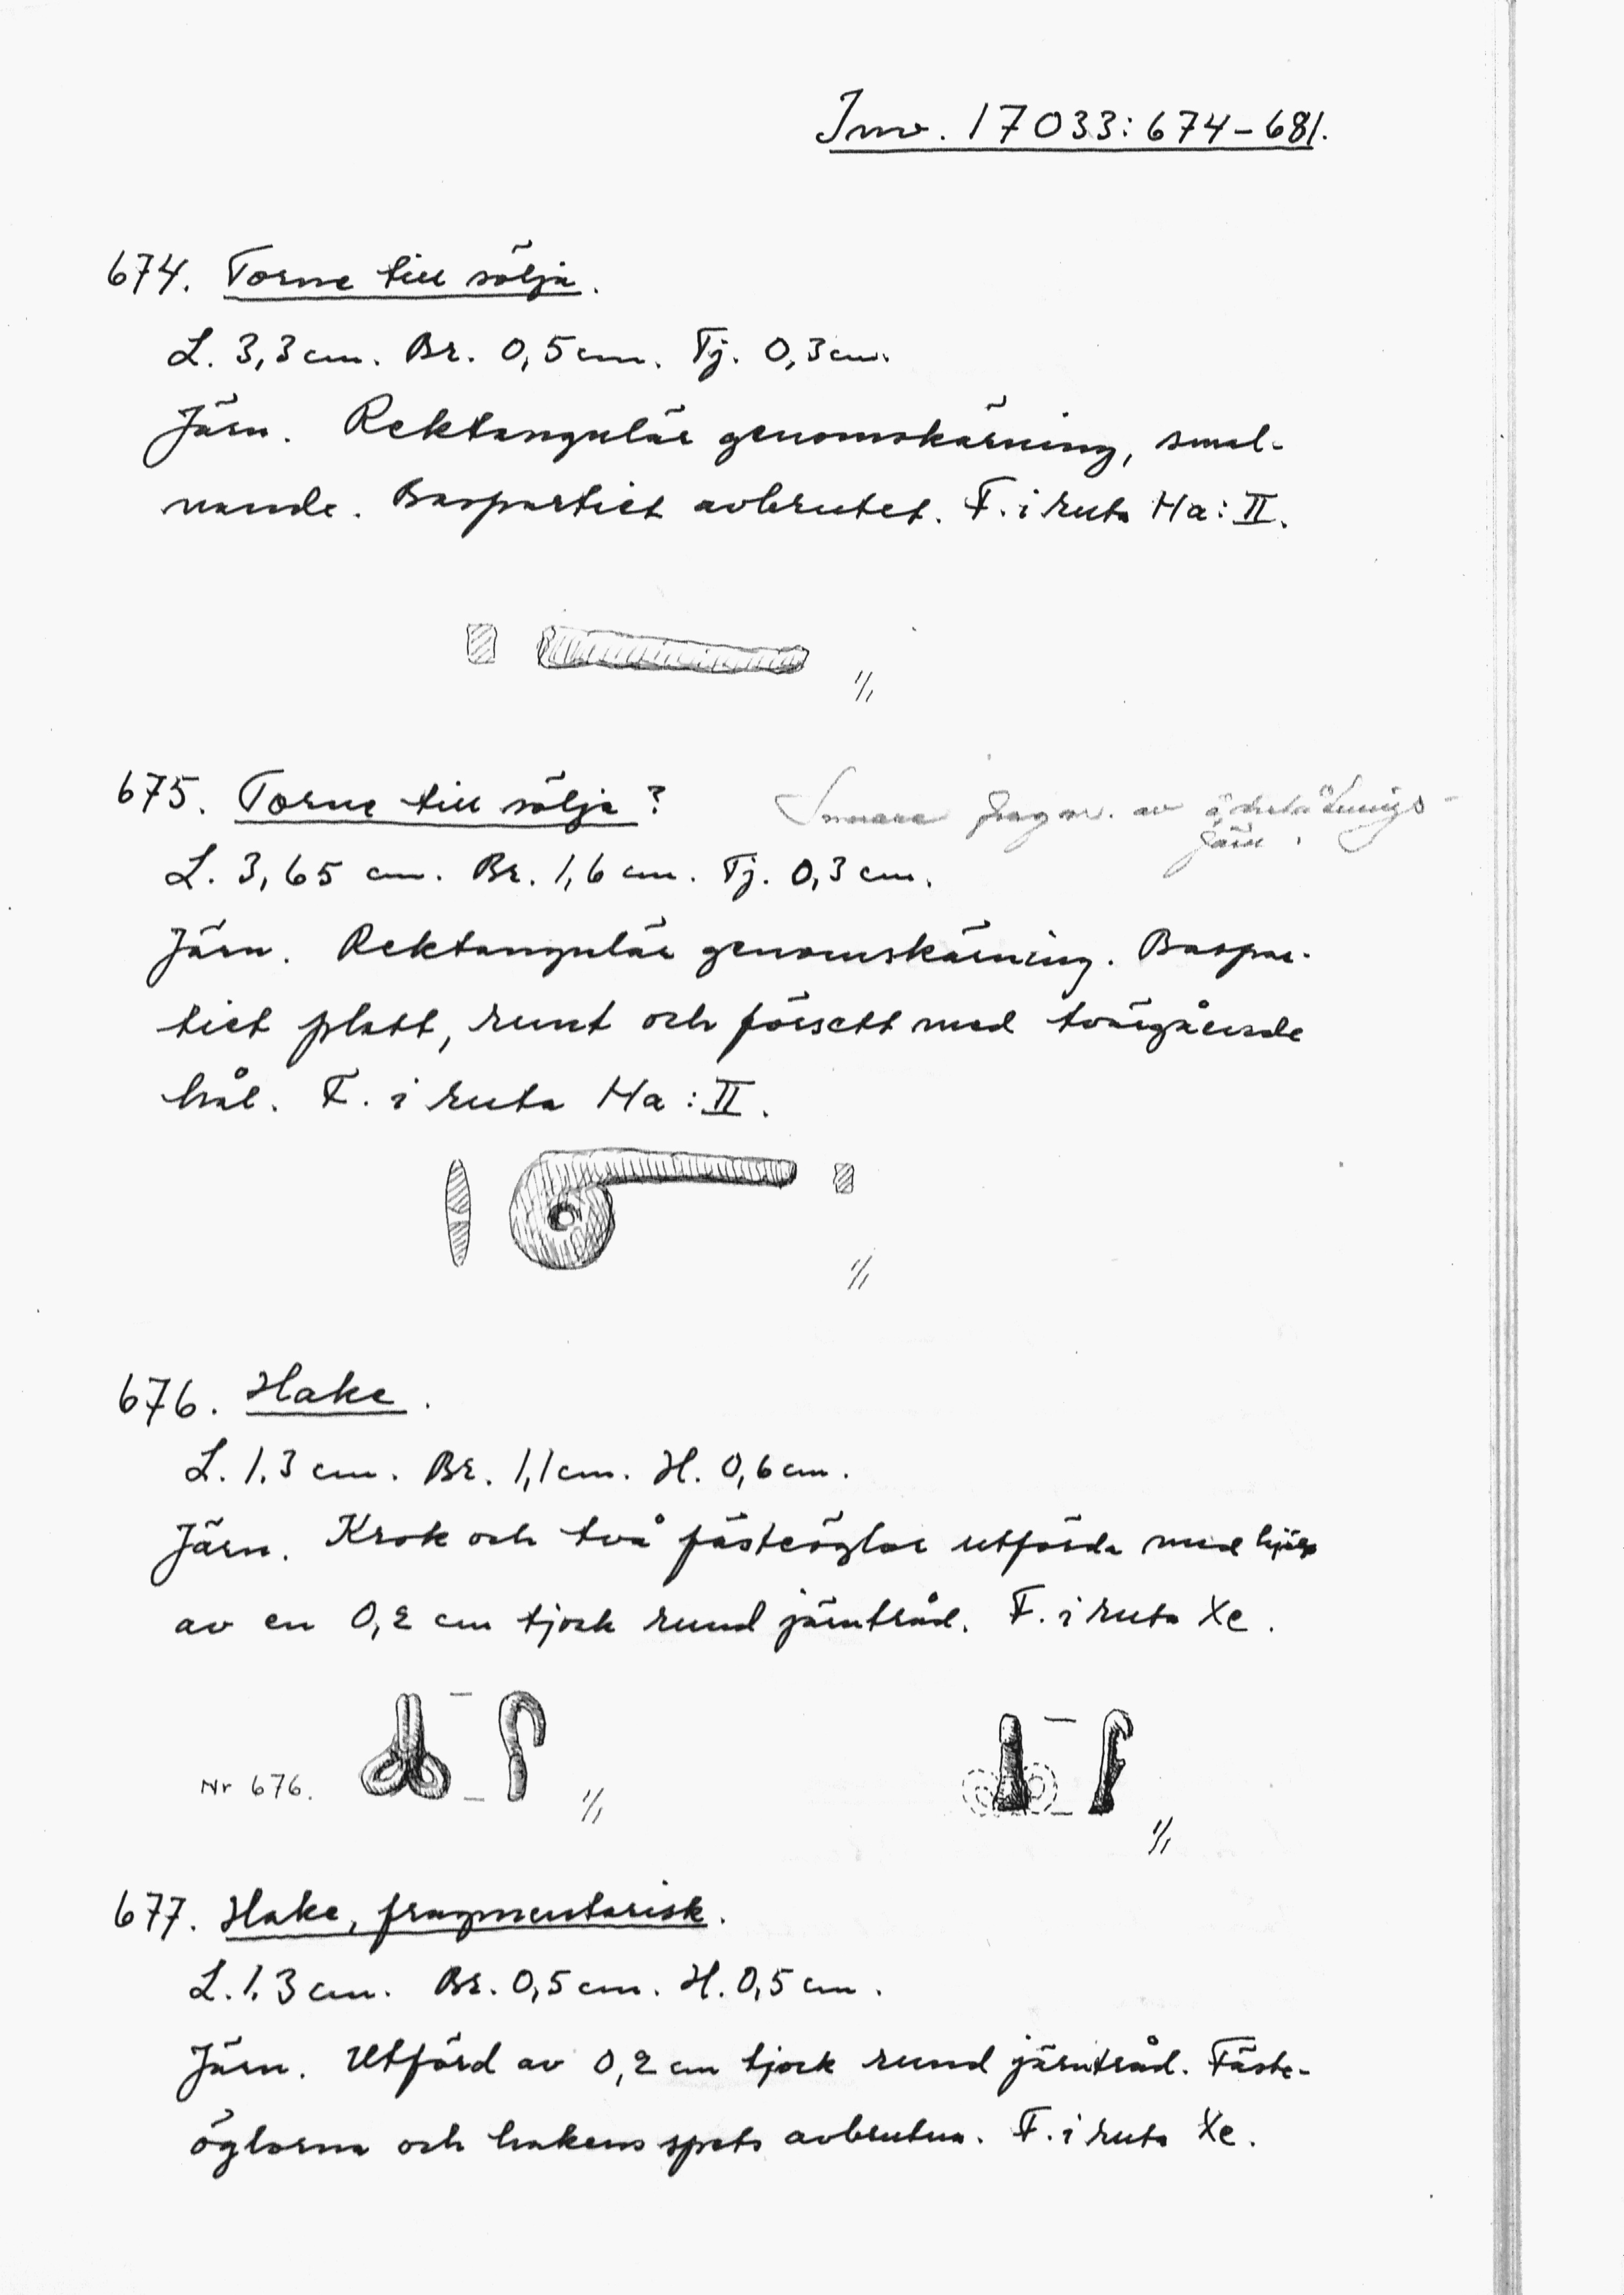 Inv. 17033:674–681.
674. Torne till sölja.
L. 3,3 cm. Br. 0,5 cm. Tj. 0,3 cm.
Järn. Rektangulär genomskärning, smal-
nande. Baspartiet avbrutet. F. i ruta Ha: II.
1/1
675. Torne till sölja?
Snarare fragm. av
järn.
L. 3,65 cm. Br. 1,6 cm. Tj. 0,3 cm.
Järn. Rektangulär genomskärning. Baspar-
tiet platt, runt och försett med tvärgående
hål. F. i ruta Ha: II.
1/1
676. Hake.
L. 1,3 cm. Br. 1,1 cm. H. 0,6 cm.
Järn. Krok och två fästeöglor utförda med hjälp
av en 0,2 cm tjock rund järntråd. F. i ruta Xe.
Nr 676.
1/1
1/1
677. Hake, fragmentarisk.
L. 1,3 cm. Br. 0,5 cm. H. 0,5 cm.
Järn. Utförd av 0,2 cm tjock rund järntråd. Fäste-
öglorna och hakens spets avbrutna. F. i ruta Xe.